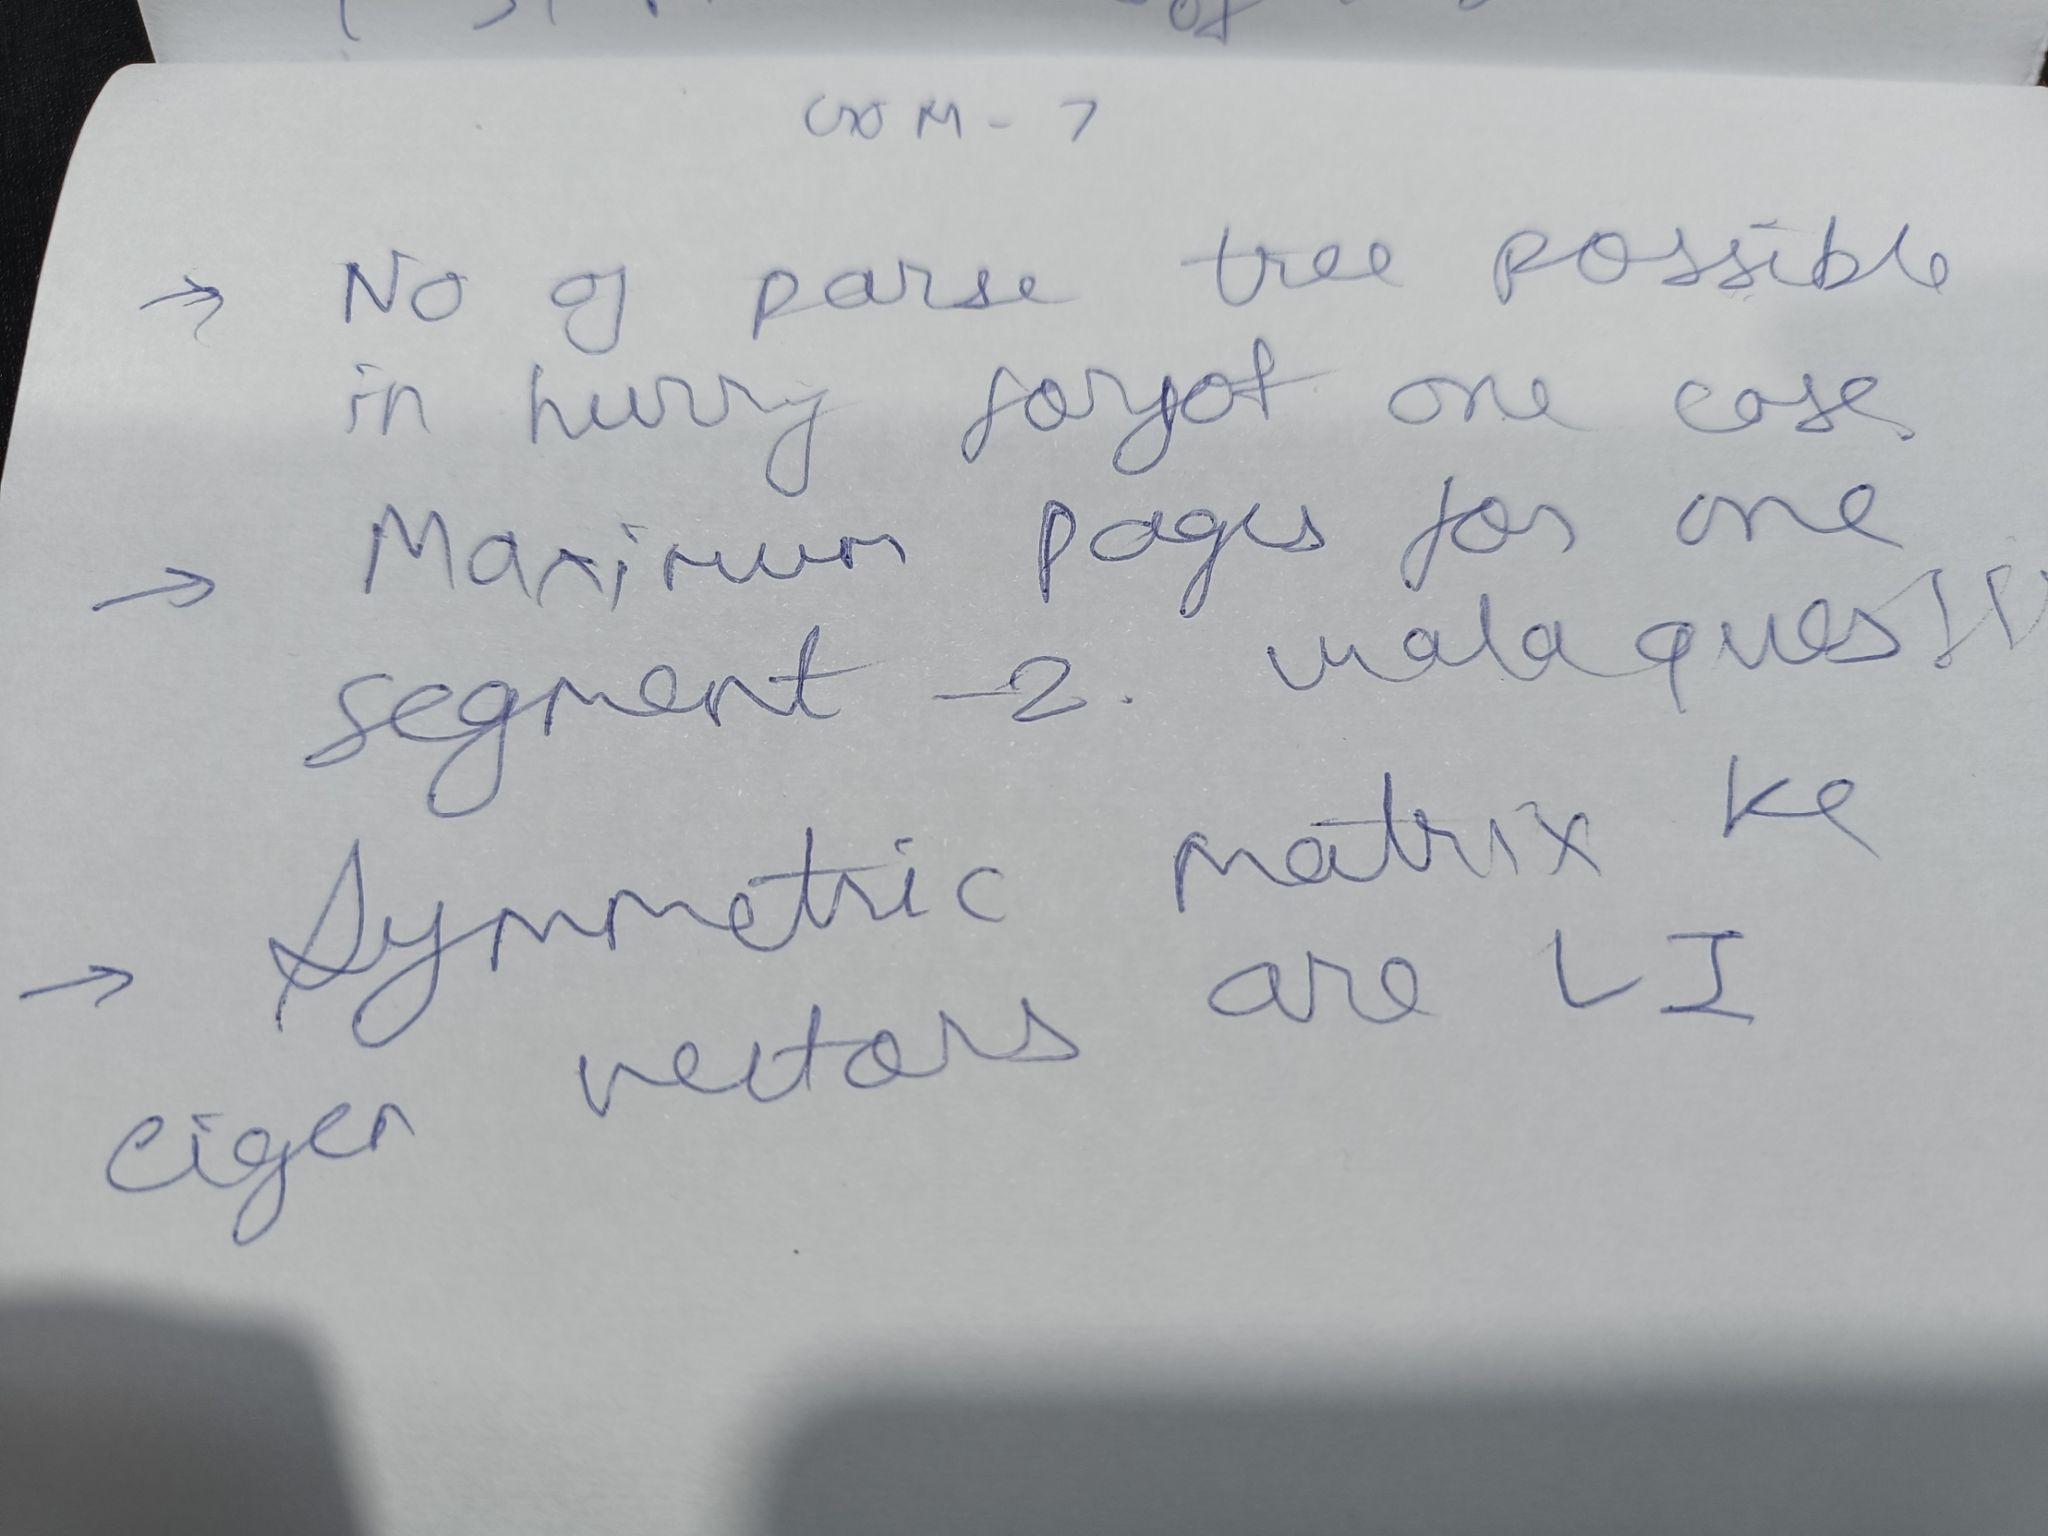 No of parse tree possible
in hurry forgot one case
Maximum pages for one
segment -2. wala ques!!!
Symmetric matrix ke
eigen vectors are LI